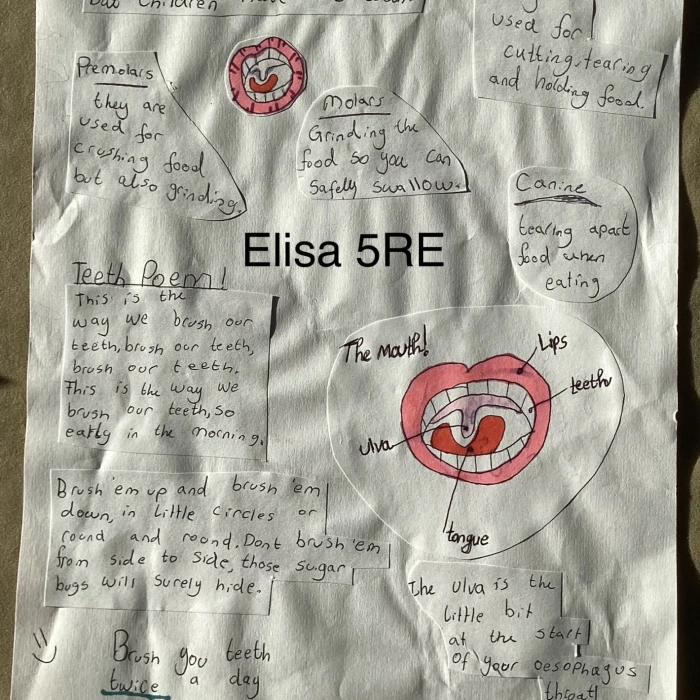 but Children
used for
cutting, tearing
and holding food.
Premolars
they are
used for
crushing food
but also grinding.
Molars
Grinding the
food so you can
safely swallow.
Canine
tearing apart
food when
eating
Elisa 5RE
Teeth Poem!
This is the
way we brush our
teeth, brush our teeth,
brush our teeth.
This is the way we
brush our teeth, so
early in the morning.
The Mouth!
Lips
teeth
ulva
tongue
Brush 'em up and brush 'em
down, in little circles or
round and round. Dont brush 'em
from side to side, those sugar
bugs will surely hide.
The ulva is the
little bit
at the start
of your oesophagus
throat
Brush you teeth
twice a day